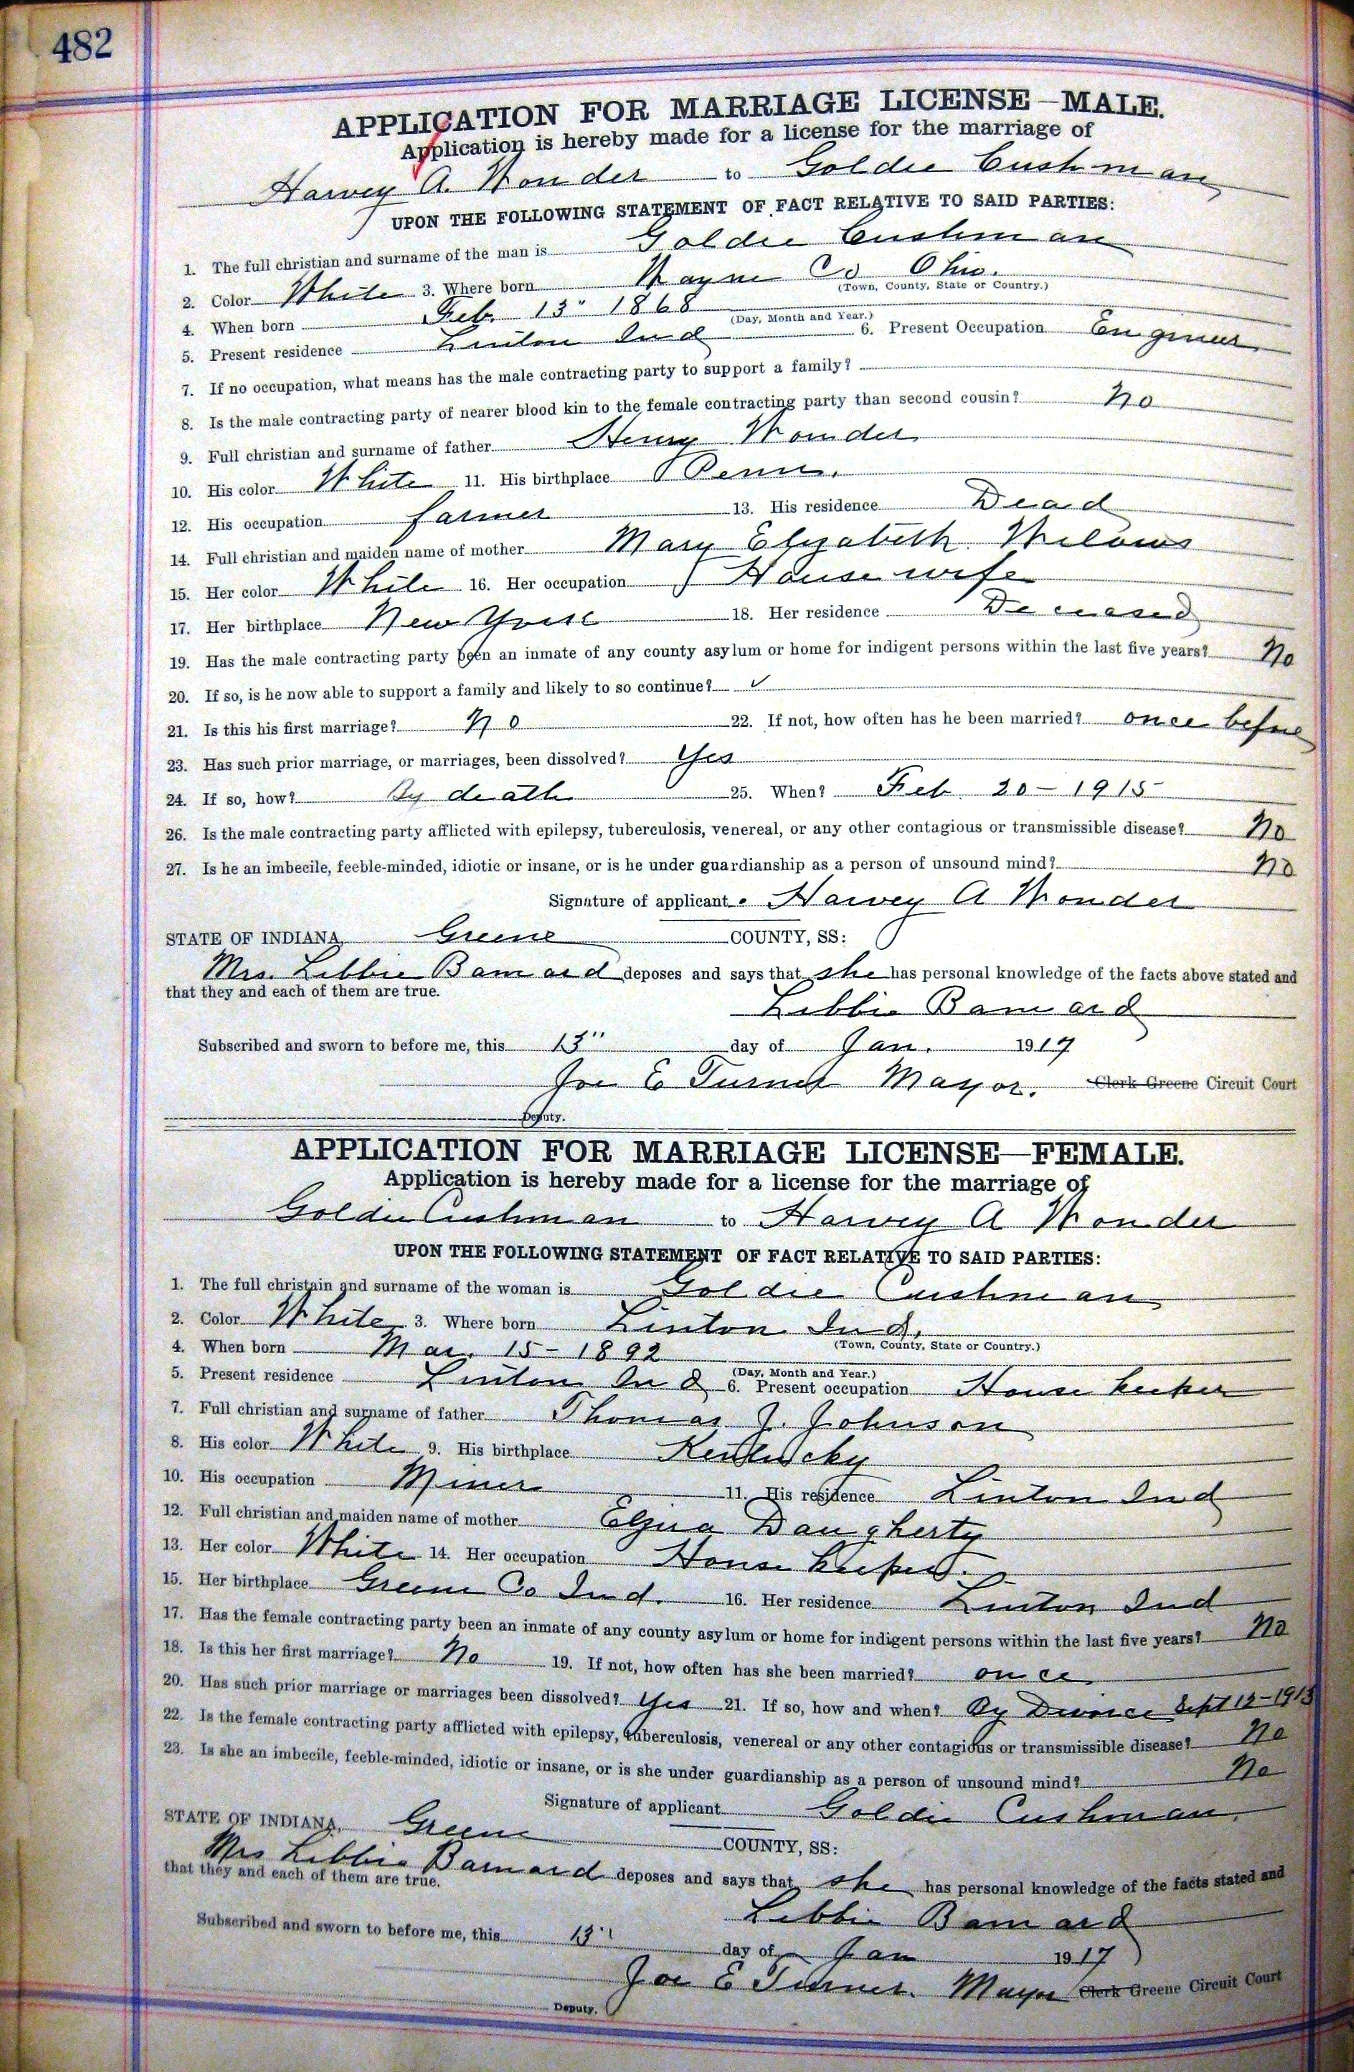 482
APPLICATION FOR MARRIAGE LICENSE—MALE.
Application is hereby made for a license for the marriage of
Harvey A. Wonder to Goldie Cushman
UPON THE FOLLOWING STATEMENT OF FACT RELATIVE TO SAID PARTIES:
1. The full christian and surname of the man is Goldie Cushman
2. Color White 3. Where born Wayne Co Ohio.
(Town, County, State or Country.)
4. When born Feb. 13" 1868
(Day, Month and Year.)
5. Present residence Linton Ind 6. Present Occupation Engineer
7. If no occupation, what means has the male contracting party to support a family?
8. Is the male contracting party of nearer blood kin to the female contracting party than second cousin? no
9. Full christian and surname of father Henry Wonder
10. His color White 11. His birthplace Penn.
12. His occupation farmer 13. His residence Dead
14. Full christian and maiden name of mother Mary Elizabeth
15. Her color White 16. Her occupation House wife
17. Her birthplace New York 18. Her residence Deceased
19. Has the male contracting party been an inmate of any county asylum or home for indigent persons within the last five years? No
20. If so, is he now able to support a family and likely to so continue? ✓
21. Is this his first marriage? No 22. If not, how often has he been married? once before
23. Has such prior marriage, or marriages, been dissolved? Yes
24. If so, how? By death 25. When? Feb 20 - 1915
26. Is the male contracting party afflicted with epilepsy, tuberculosis, venereal, or any other contagious or transmissible disease? No
27. Is he an imbecile, feeble-minded, idiotic or insane, or is he under guardianship as a person of unsound mind? no
Signature of applicant Harvey A Wonder
STATE OF INDIANA, Greene COUNTY, SS:
Mrs. Libbie Barnard deposes and says that she has personal knowledge of the facts above stated and
that they and each of them are true.
Libbie Barnard
Subscribed and sworn to before me, this 13" day of Jan. 1917
Joe E Turner Mayor. Clerk Greene Circuit Court
Deputy.
APPLICATION FOR MARRIAGE LICENSE—FEMALE.
Application is hereby made for a license for the marriage of
Goldie Cushman to Harvey A Wonder
UPON THE FOLLOWING STATEMENT OF FACT RELATIVE TO SAID PARTIES:
1. The full christain and surname of the woman is Goldie Cushman
2. Color White 3. Where born Linton Ind.
(Town, County, State or Country.)
4. When born Mar. 15 - 1892
(Day, Month and Year.)
5. Present residence Linton Ind 6. Present occupation House keeper
7. Full christian and surname of father Thomas J. Johnson
8. His color White 9. His birthplace Kentucky
10. His occupation Miner 11. His residence Linton Ind
12. Full christian and maiden name of mother Daugherty
13. Her color White 14. Her occupation House keeper.
15. Her birthplace Greene Co Ind. 16. Her residence Linton Ind
17. Has the female contracting party been an inmate of any county asylum or home for indigent persons within the last five years? No
18. Is this her first marriage? No 19. If not, how often has she been married? once
20. Has such prior marriage or marriages been dissolved? Yes 21. If so, how and when? By Divorce Sept 12-1913
22. Is the female contracting party afflicted with epilepsy, tuberculosis, venereal or any other contagious or transmissible disease? No
23. Is she an imbecile, feeble-minded, idiotic or insane, or is she under guardianship as a person of unsound mind? No
Signature of applicant Goldie Cushman.
STATE OF INDIANA, Greene COUNTY, SS:
Mrs Libbie Barnard deposes and says that she has personal knowledge of the facts stated and
that they and each of them are true.
Libbie Barnard
Subscribed and sworn to before me, this 13" day of Jan 1917
Joe E Turner. Mayor Clerk Greene Circuit Court
Deputy.